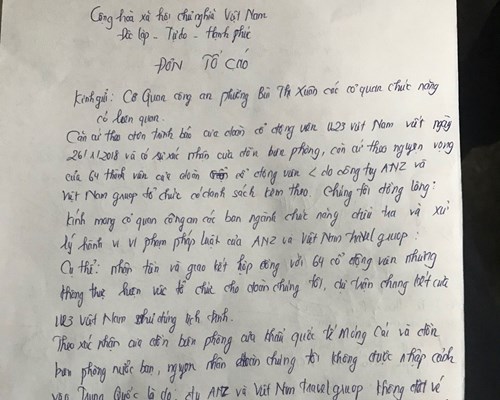 Cộng hoà xã hội chủ nghĩa Việt Nam
Độ lập - Tự do - Hạnh phúc
ĐƠN TỐ CÁO
Kính gửi: Cơ Quan công an phường Bùi Thị Xuân các cơ quan chức năng
có liên quan.
Căn cứ theo đơn trình báo của đoàn cổ động viên U23 Việt Nam viết ngày
26/1/2018 và có sự xác nhận của đồn biên phòng, căn cứ theo nguyện vọng
của 64 thành viên của đoàn cổ động viên < do công ty ANZ và
Việt Nam group tổ chức có danh sách kèm theo. Chúng tôi đồng lòng:
Kính mong cơ quan công an các ban ngành chức năng điều tra và xử
lý hành vi vi phạm pháp luật của ANZ và Việt Nam travel group:
Cụ thể: nhận tiền và giao kết hợp đồng với 64 cổ động viên nhưng
không thực hiện việc tổ chức cho đoàn chúng tôi, dự trận chung kết của
U23 Việt Nam như đúng lịch trình.
Theo xác nhận của đồn biên phòng cửa khẩu quốc tế Móng Cái và đồn
biên phòng nước bạn, nguyên nhân đoàn chúng tôi không được nhập cảnh
vào Trung Quốc là do. cty ANZ và Việt Nam travel group không đặt vé